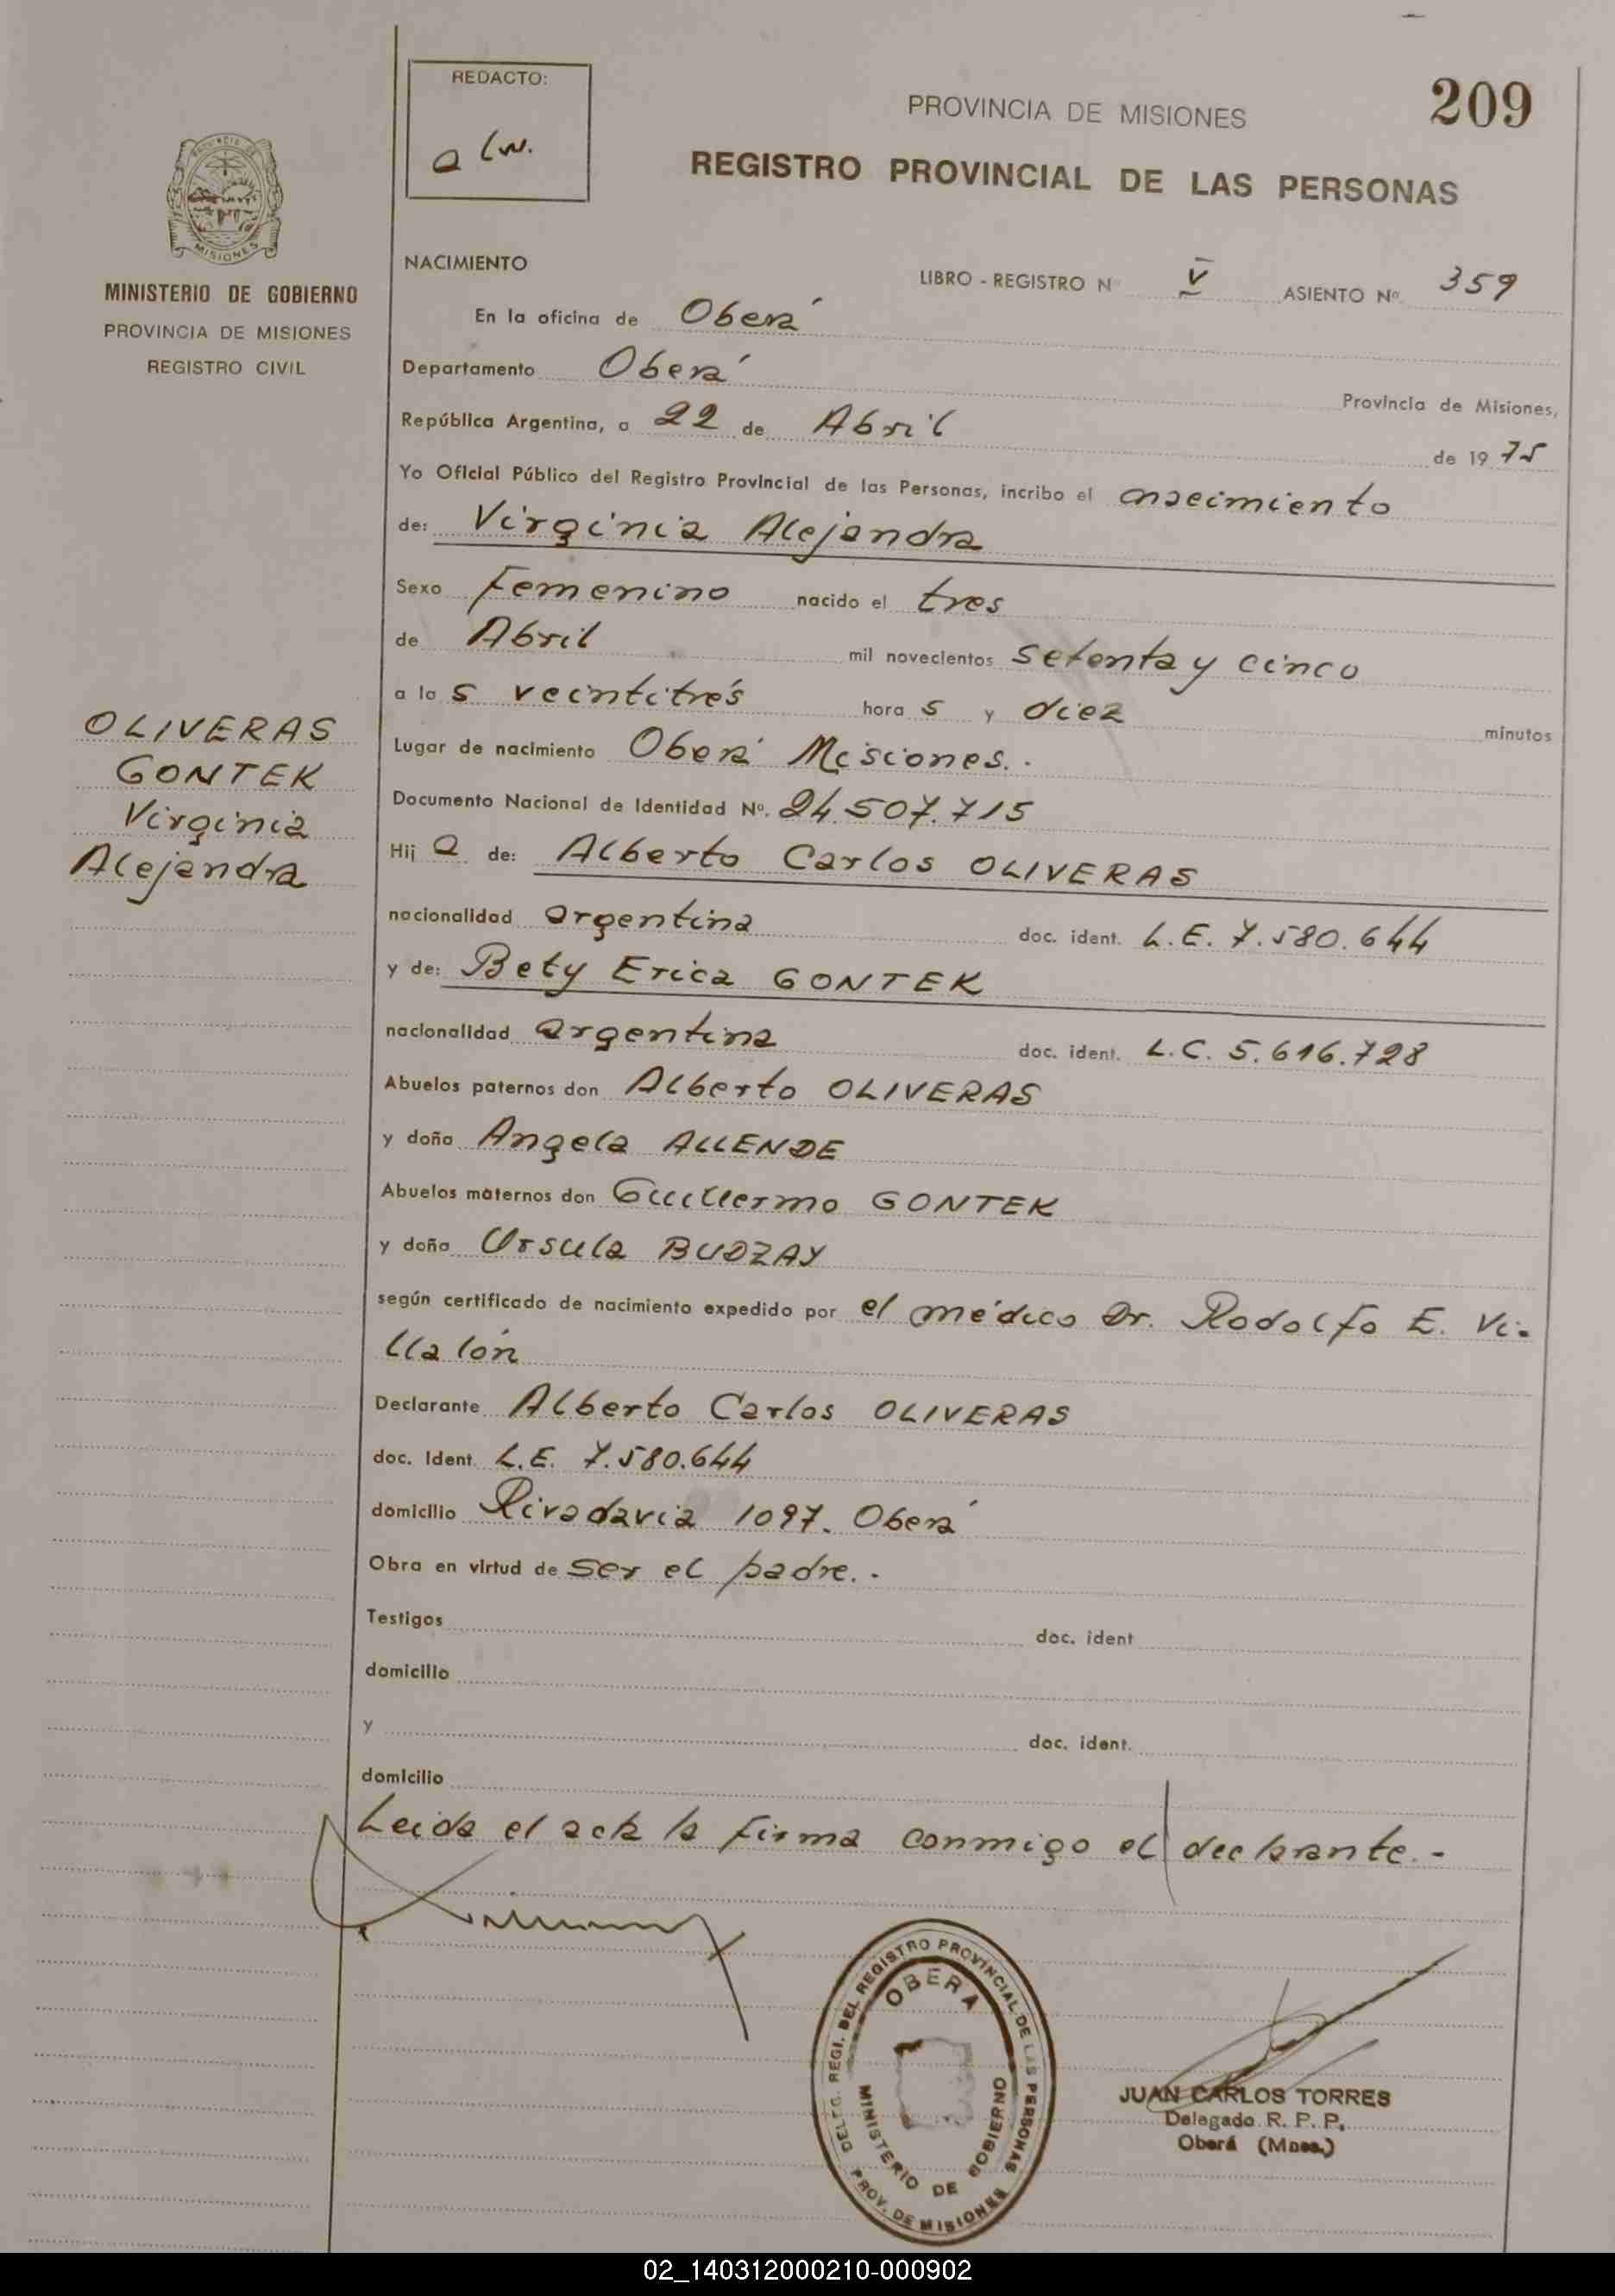 REDACTO:
PROVINCIA DE MISIONES
209
REGISTRO PROVINCIAL DE LAS PERSONAS
MISIONES
MINISTERIO DE GOBIERNO
PROVINCIA DE MISIONES
REGISTRO CIVIL
NACIMIENTO
LIBRO - REGISTRO N V ASIENTO Nº 359
En la oficina de Oberá
Departamento Oberá
Provincia de Misiones,
República Argentina, a 22 de Abril de 1975
Yo Oficial Público del Registro Provincial de las Personas, incribo el nacimiento
de: Virginia Alejandra
Sexo Femenino nacido el tres
de Abril mil novecientos setenta y cinco
a las veintitrés horas y diez minutos
Lugar de nacimiento Oberá Misiones.-
Documento Nacional de Identidad Nº. 24.507.715
OLIVERAS
GONTEK
Virginia
Alejandra
Hija de: Alberto Carlos OLIVERAS
nacionalidad argentina doc. ident. L.E. 7.580.644
y de: Bety Erica GONTEK
nacionalidad argentina doc. ident. L.C. 5.616.728
Abuelos paternos don Alberto OLIVERAS
y doña Angela ALLENDE
Abuelos maternos don Guillermo GONTEK
y doña Ursula BUDZAY
según certificado de nacimiento expedido por el médico Dr. Rodolfo E. Vi-
llalón
Declarante Alberto Carlos OLIVERAS
doc. Ident. L.E. 7.580.644
domicilio Rivadavia 1097. Oberá
Obra en virtud de ser el padre.-
Testigos doc. ident
domicilio
y doc. ident.
domicilio
Leida el acta la firma conmigo el declarante.-
DELEG. REGI. DEL REGISTRO PROVINCIAL DE LAS PERSONAS
OBERA
MINISTERIO DE GOBIERNO
PROV. DE MISIONES
JUAN CARLOS TORRES
Delegado R. P. P.
Oberá (Mnes.)
02_140312000210-000902